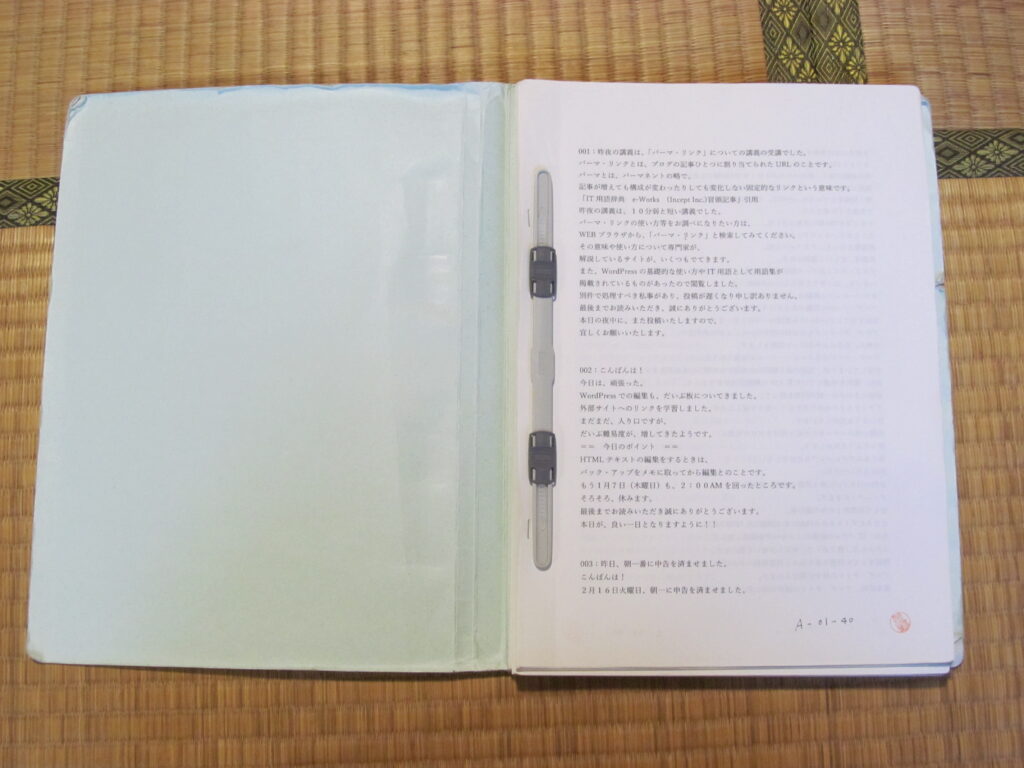 001：昨夜の講義は、「パーマ・リンク」についての講義の受講でした。
パーマ・リンクとは、ブログの記事ひとつに割り当てられた URL のことです。
パーマとは、パーマネントの略で、
記事が増えても構成が変わったりしても変化しない固定的なリンクという意味です。
「IT 用語辞典　e-Works　(Incept Inc.)冒頭記事」引用
昨夜の講義は、１０分弱と短い講義でした。
パーマ・リンクの使い方等をお調べになりたい方は、
WEB ブラウザから、「パーマ・リンク」と検索してみてください。
その意味や使い方について専門家が、
解説しているサイトが、いくつもでてきます。
また、WordPress の基礎的な使い方や IT 用語として用語集が
掲載されているものがあったので閲覧しました。
別件で処理すべき私事があり、投稿が遅くなり申し訳ありません。
最後までお読みいただき、誠にありがとうございます。
本日の夜中に、また投稿いたしますので、
宜しくお願いいたします。
002：こんばんは！
今日は、頑張った。
WordPress での編集も、だいぶ板についてきました。
外部サイトへのリンクを学習しました。
まだまだ、入り口ですが、
だいぶ難易度が、増してきたようです。
＝＝　今日のポイント　＝＝
HTML テキストの編集をするときは、
バック・アップをメモに取ってから編集とのことです。
もう１月７日（木曜日）も、２：００AM を回ったところです。
そろそろ、休みます。
最後までお読みいただき誠にありがとうございます。
本日が、良い一日となりますように！！
003：昨日、朝一番に申告を済ませました。
こんばんは！
２月１６日火曜日、朝一に申告を済ませました。
A-01-40